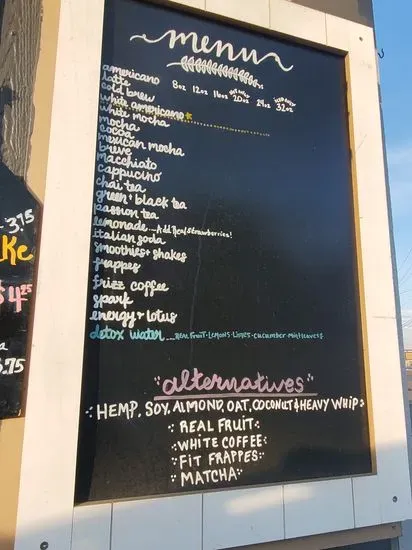 menu
8oz 12oz 16oz HOT ONLY 20oz 24oz ICED ONLY 32oz
americano
latte
cold brew
white americano
white mocha
mocha
cocoa
mexican mocha
breve
macchiato
cappucino
chai tea
green + black tea
passion tea
lemonade ... Add Real Strawberries!
italian soda
smoothies + shakes
frappes
frizz coffee
spark
energy + lotus
detox water ... REAL FRUIT · LEMONS · LIMES · CUCUMBER · MINT LEAVES
"alternatives"
HEMP, SOY, ALMOND, OAT, COCONUT & HEAVY WHIP
REAL FRUIT
WHITE COFFEE
FIT FRAPPES
MATCHA
3.75
Ke
$4.25
.75